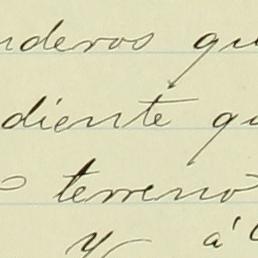 nderos qu
diente qu
o terreno
y á